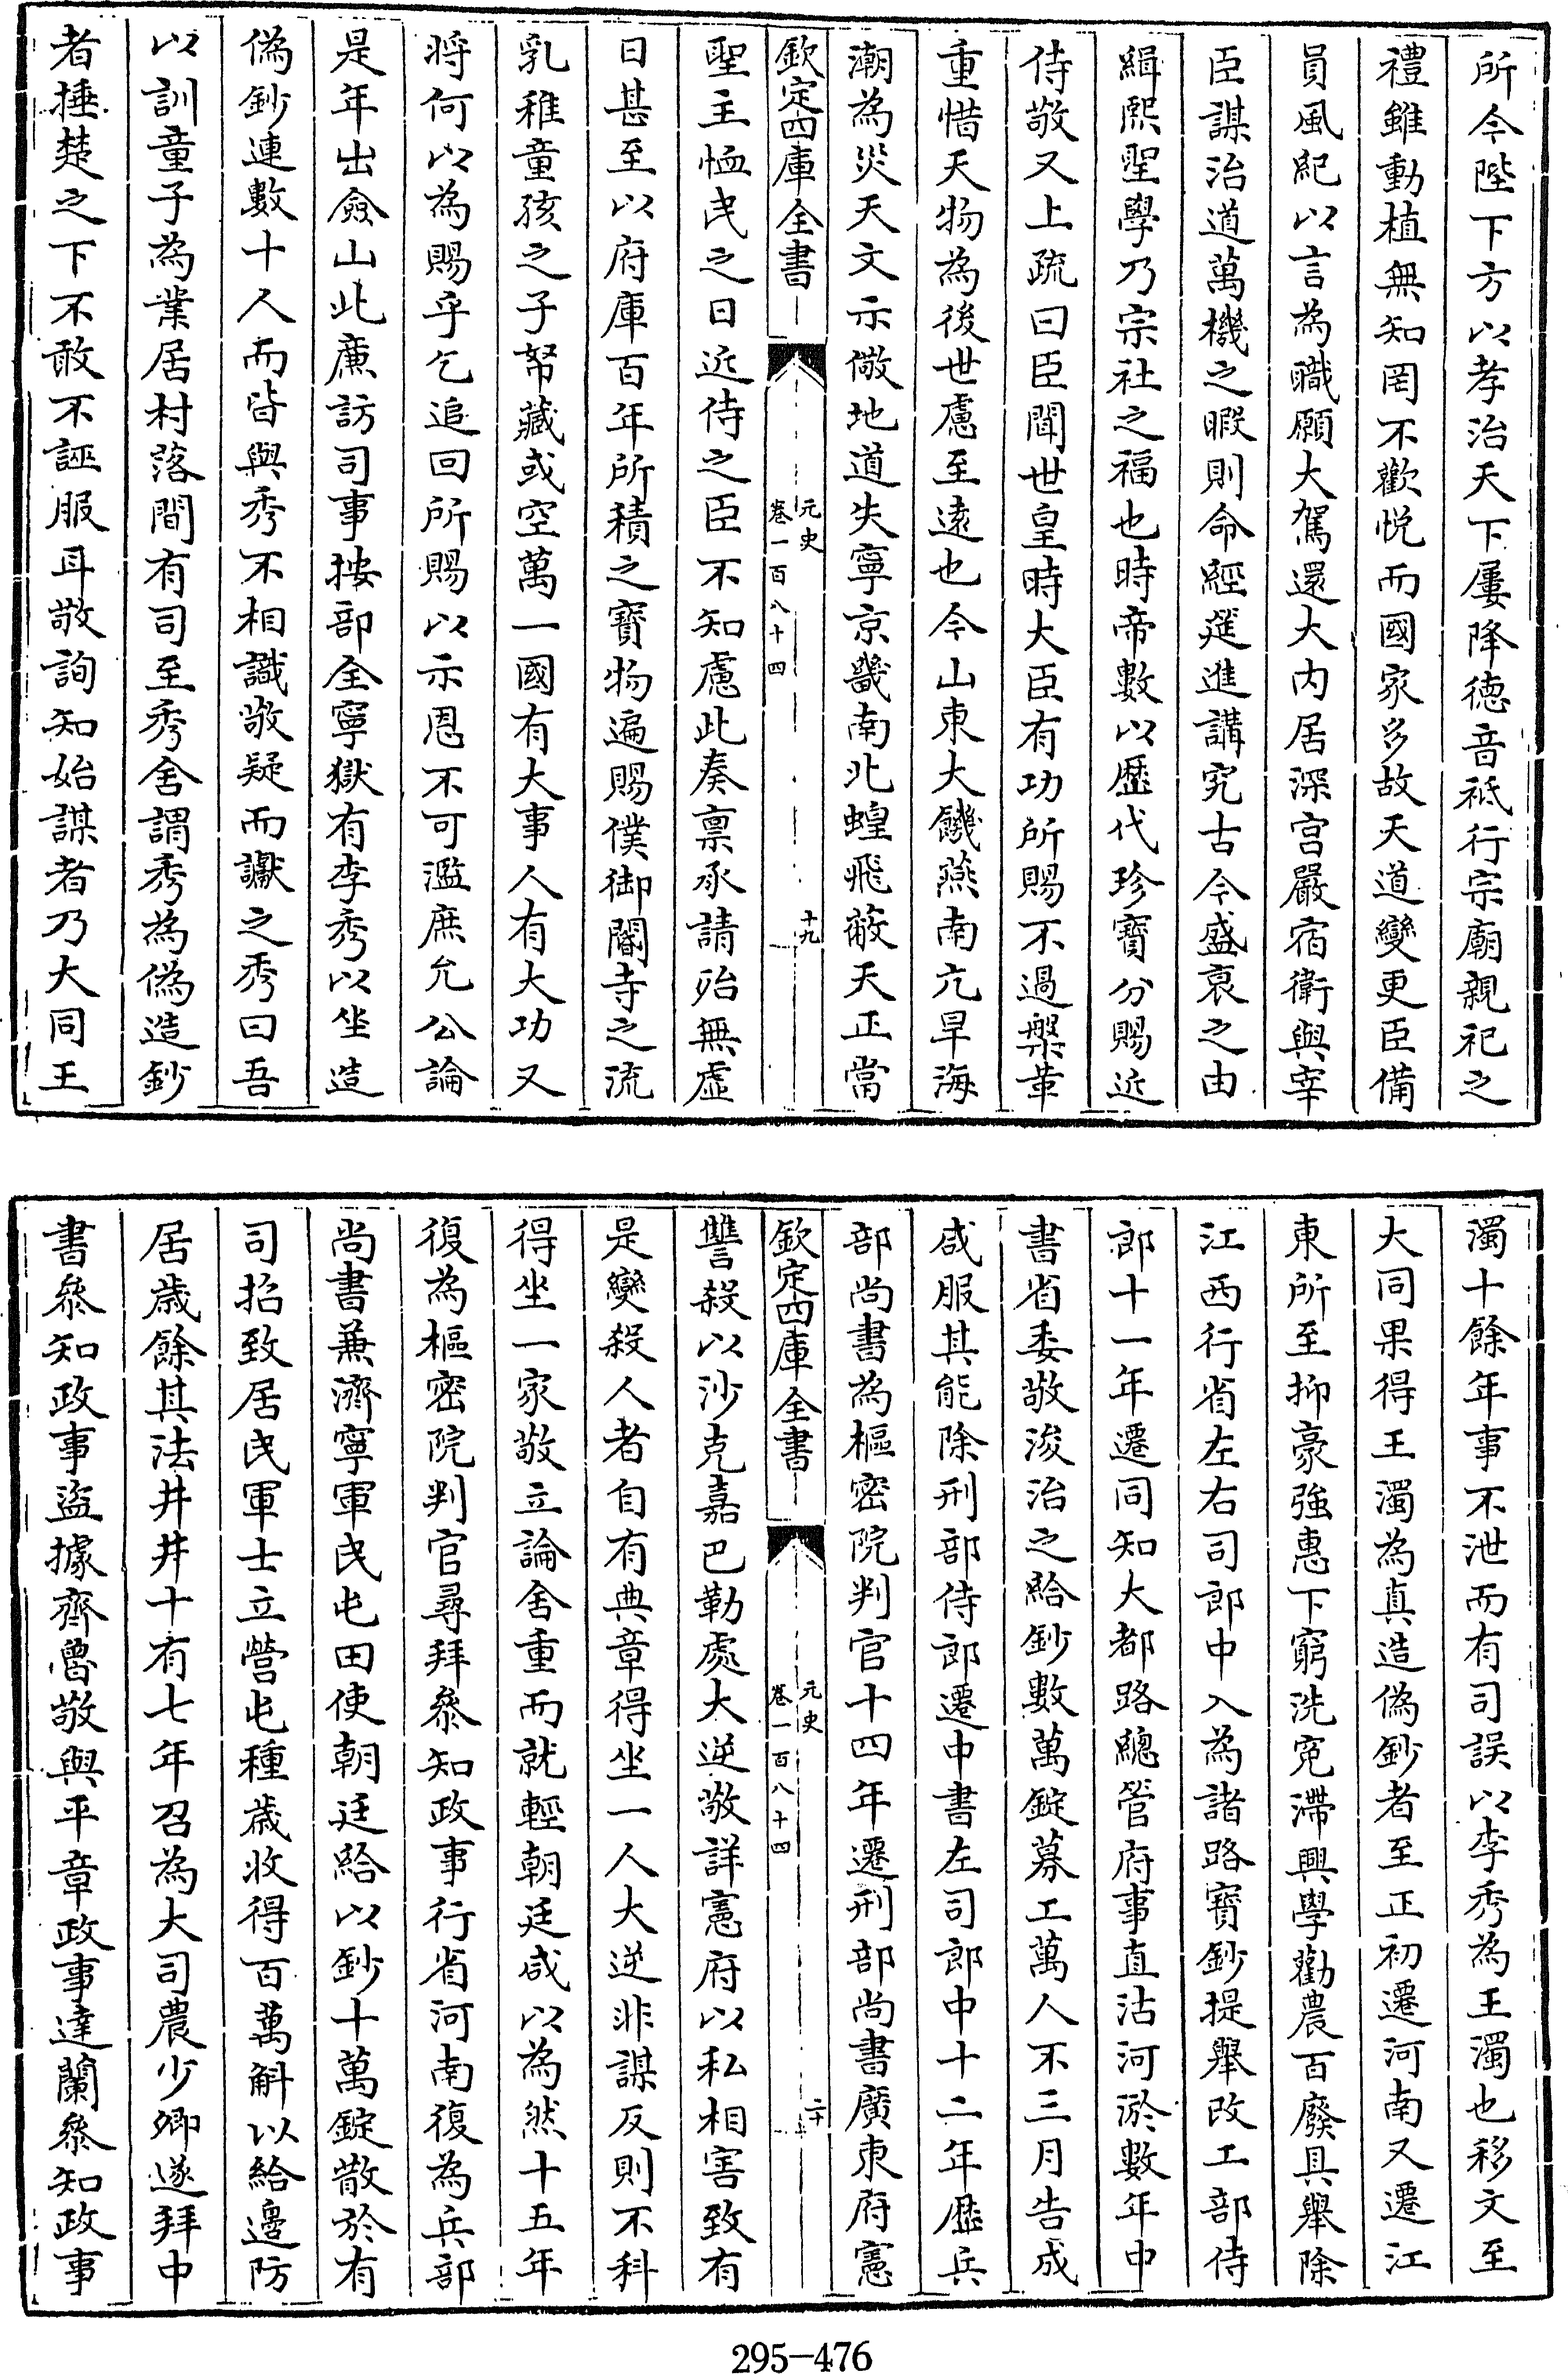 所今陛下方以孝治天下屢降徳音祗行宗廟親祀之
禮雖動植無知罔不歡悦而國家多故天道變更臣備
員風紀以言為職願大駕還大内居深宫嚴宿衛與宰
臣謀治道萬機之暇則命經筵進講究古今盛衰之由
緝熙聖學乃宗社之福也時帝數以歷代珍寳分賜近
侍敬又上疏曰臣聞世皇時大臣有功所賜不過槃革
重惜天物為後世慮至遠也今山東大饑燕南亢旱海
潮為災天文示儆地道失寧京畿南北蝗飛蔽天正當
欽定四庫全書
元史
卷一百八十四
十九
聖主恤民之日近侍之臣不知慮此奏禀承請殆無虚
日甚至以府庫百年所積之寳物遍賜僕御閽寺之流
乳稚童孩之子帑藏或空萬一國有大事人有大功又
將何以為賜乎乞追回所賜以示恩不可濫庶允公論
是年出僉山北廉訪司事按部全寧獄有李秀以坐造
偽鈔連數十人而皆與秀不相識敬疑而讞之秀曰吾
以訓童子為業居村落間有司至秀舍謂秀為偽造鈔
者捶楚之下不敢不誣服耳敬詢知始謀者乃大同王
濁十餘年事不泄而有司誤以李秀為王濁也移文至
大同果得王濁為真造偽鈔者至正初遷河南又遷江
東所至抑豪強惠下窮洗寃滯興學勸農百廢具舉除
江西行省左右司郎中入為諸路寳鈔提舉改工部侍
郎十一年遷同知大都路總管府事直沽河淤數年中
書省委敬浚治之給鈔數萬錠募工萬人不三月告成
咸服其能除刑部侍郎遷中書左司郎中十二年歴兵
部尚書為樞密院判官十四年遷刑部尚書廣東府憲
欽定四庫全書
元史
卷一百八十四
二十
讐殺以沙克嘉巴勒處大逆敬詳憲府以私相害致有
是變殺人者自有典章得坐一人大逆非謀反則不科
得坐一家敬立論舍重而就輕朝廷咸以為然十五年
復為樞密院判官尋拜叅知政事行省河南復為兵部
尚書兼濟寧軍民屯田使朝廷給以鈔十萬錠散於有
司招致居民軍士立營屯種歳收得百萬斛以給邊防
居歳餘其法井井十有七年召為大司農少卿遂拜中
書叅知政事盗據齊魯敬與平章政事達蘭叅知政事
295-476